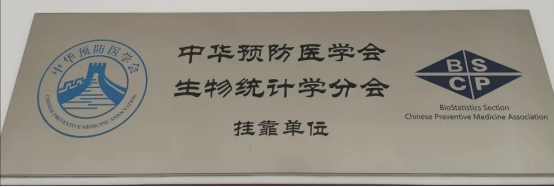 中华预防医学会
CHINESE PREVENTIVE MEDICINE ASSOCIATION
中华预防医学会
生物统计学分会
挂靠单位
BS
CP
BioStatistics Section
Chinese Preventive Medicine Association